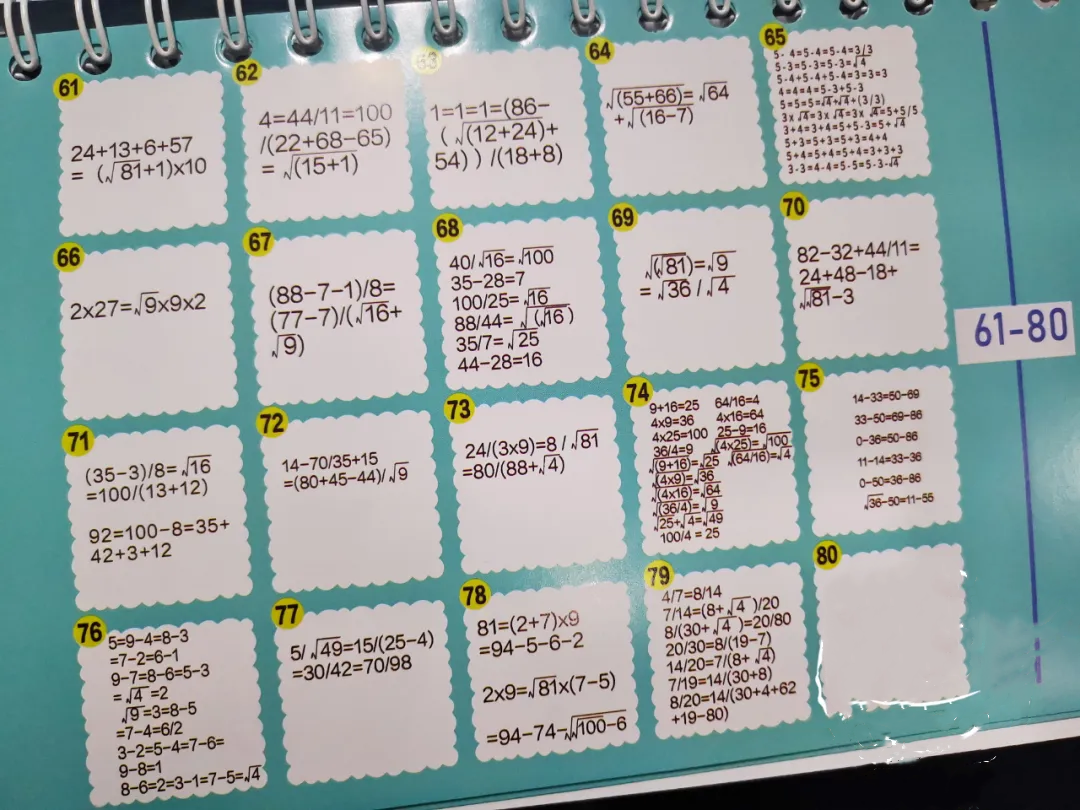 61
24+13+6+57
= (√81+1)x10
62
4=44/11=100
/(22+68−65)
= √(15+1)
63
1=1=1=(86−
( √(12+24)+
54) ) /(18+8)
64
√(55+66)= √64
+√(16−7)
65
5- 4=5-4=5-4=3/3
5-3=5-3=5-3=√4
5-4+5-4+5-4=3=3=3
4=4=4=5-3+5-3
5=5=5=√4+√4+(3/3)
3x √4=3x √4=3x √4=5+5/5
3+4=3+4=5+5-3=5+√4
5+3=5+3=5+3=4+4
5+4=5+4=5+4=3+3+3
3-3=4-4=5-5=5-3-√4
66
2x27=√9x9x2
67
(88−7−1)/8=
(77−7)/(√16+
√9)
68
40/√16=√100
35−28=7
100/25=√16
88/44= √(√16)
35/7=√25
44−28=16
69
√(√81)=√9
= √36 / √4
70
82−32+44/11=
24+48−18+
√√81−3
61-80
71
(35−3)/8= √16
=100/(13+12)
92=100−8=35+
42+3+12
72
14−70/35+15
=(80+45−44)/√9
73
24/(3x9)=8 / √81
=80/(88+√4)
74
9+16=25 64/16=4
4x9=36 4x16=64
4x25=100 25−9=16
36/4=9 √(4x25)=√100
√(9+16)=√25 √(64/16)=√4
√(4x9)=√36
√(4x16)=√64
√(36/4)=√9
√25+√4=√49
100/4 = 25
75
14−33=50−69
33−50=69−86
0−36=50−86
11−14=33−36
0−50=36−86
√36−50=11−55
76
5=9−4=8−3
=7−2=6−1
9−7=8−6=5−3
= √4 =2
√9=3=8−5
=7−4=6/2
3−2=5−4=7−6=
9−8=1
8−6=2=3−1=7−5=√4
77
5/ √49=15/(25−4)
=30/42=70/98
78
81=(2+7)x9
=94−5−6−2
2x9=√81x(7−5)
=94−74−√√100−6
79
4/7=8/14
7/14=(8+√4 )/20
8/(30+√4 )=20/80
20/30=8/(19−7)
14/20=7/(8+ √4)
7/19=14/(30+8)
8/20=14/(30+4+62
+19−80)
80